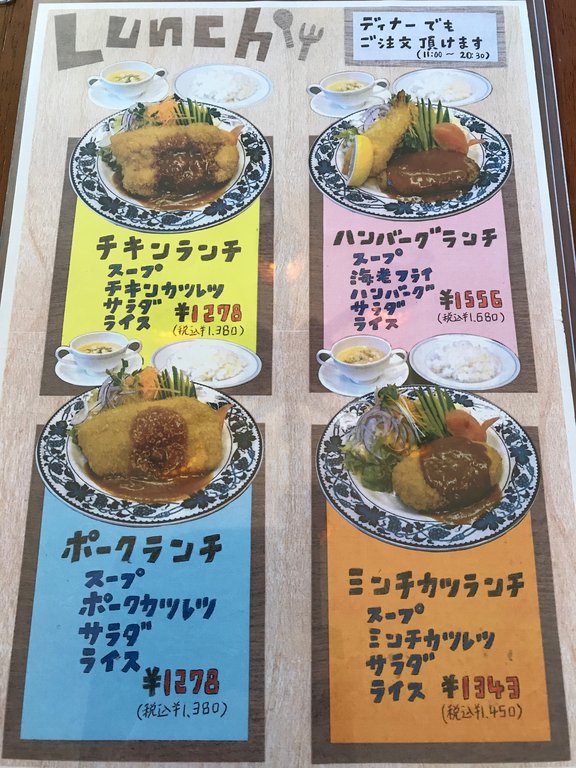 Lunch
ディナーでも
ご注文頂けます
(11:00～20:30)
チキンランチ
スープ
チキンカツレツ
サラダ
ライス
¥1278
(税込¥1,380)
ハンバーグランチ
スープ
海老フライ
ハンバーグ
サラダ
ライス
¥1556
(税込¥1,680)
ポークランチ
スープ
ポークカツレツ
サラダ
ライス
¥1278
(税込¥1,380)
ミンチカツランチ
スープ
ミンチカツレツ
サラダ
ライス
¥1343
(税込¥1,450)